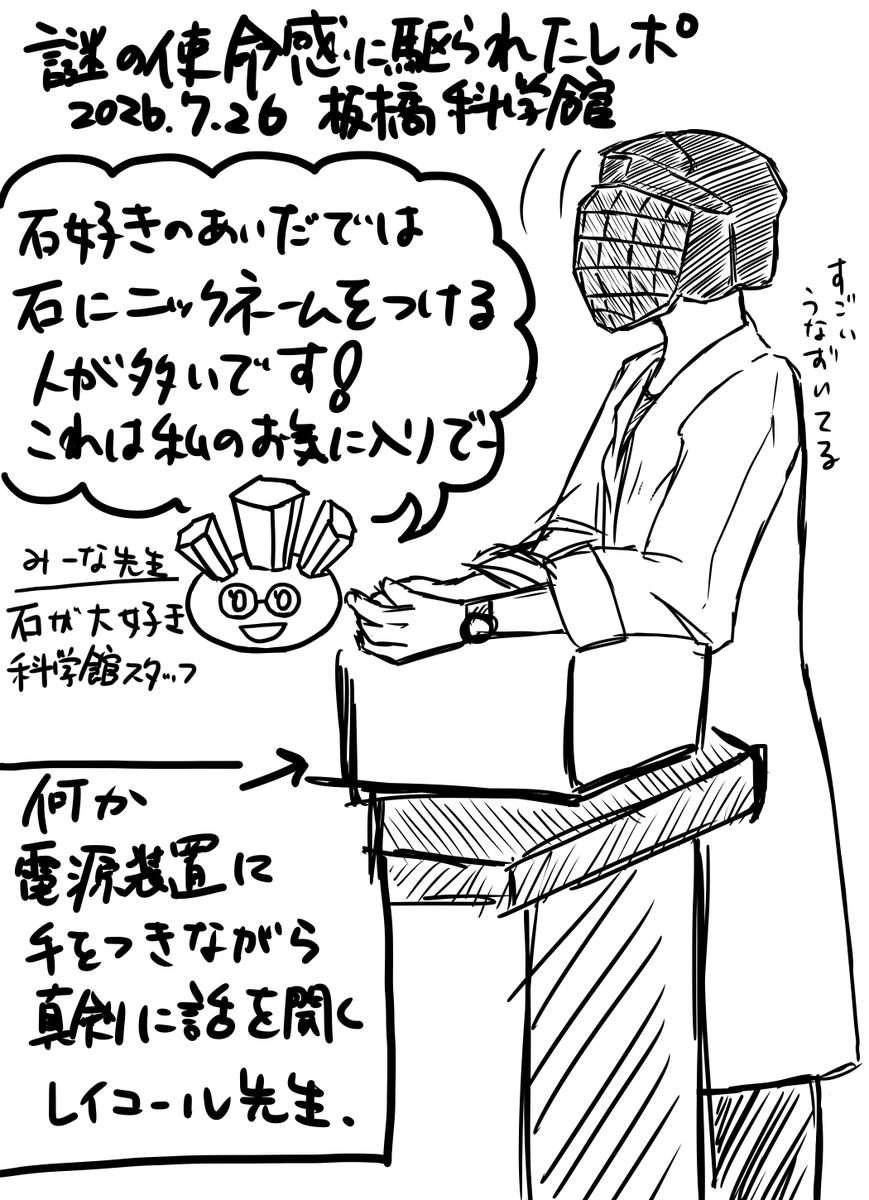 謎の使命感に駆られたレポ
2026.7.26 板橋科学館
石好きのあいだでは
石にニックネームをつける
人が多いです!
これは私のお気に入りで-
すごい
うなずいてる
みーな先生
石が大好き
科学館スタッフ
何か
電源装置に
手をつきながら
真剣に話を聞く
レイコール先生.